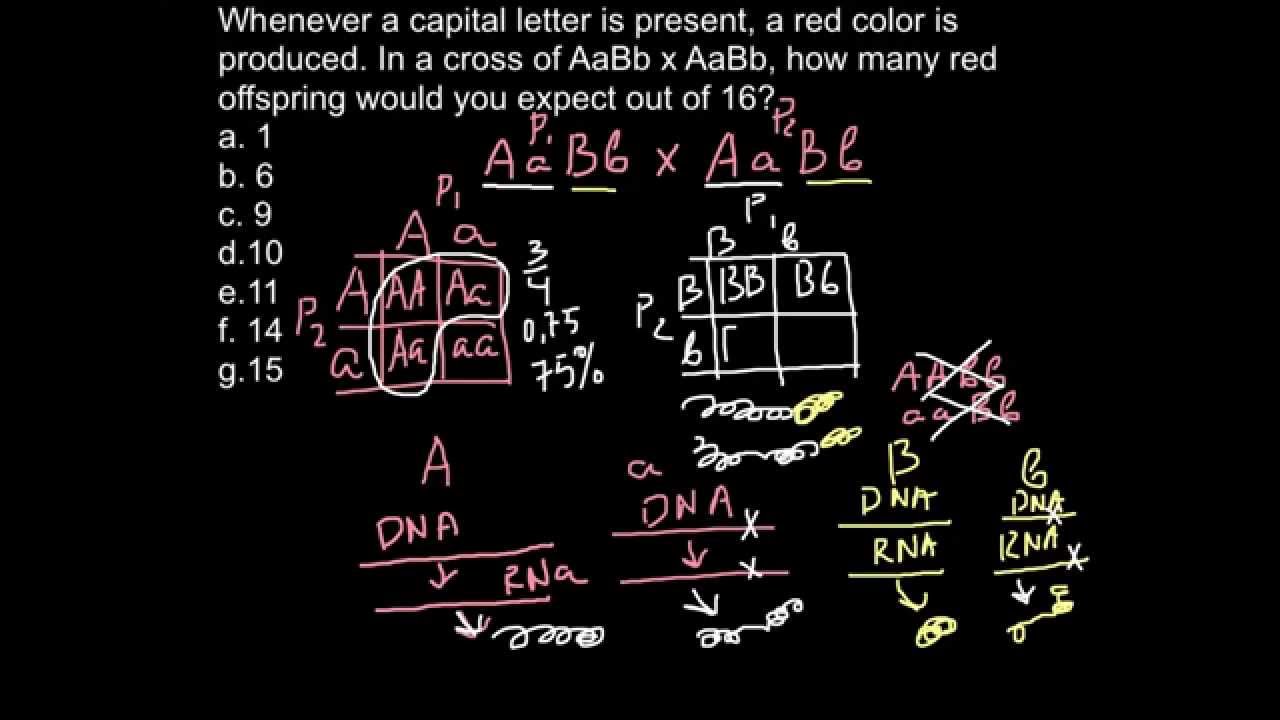 Whenever a capital letter is present, a red color is
produced. In a cross of AaBb x AaBb, how many red
offspring would you expect out of 16?
a. 1
b. 6
c. 9
d.10
e.11
f. 14
g.15
P1 P2
Aa Bb x Aa Bb
P1
A a
P2
A AA Aa
a Aa aa
3
4
0,75
75%
P1
B b
P2
B BB Bb
b
AABb
aaBb
A
DNA
RNA
a
DNA
B
DNA
RNA
b
DNA
RNA